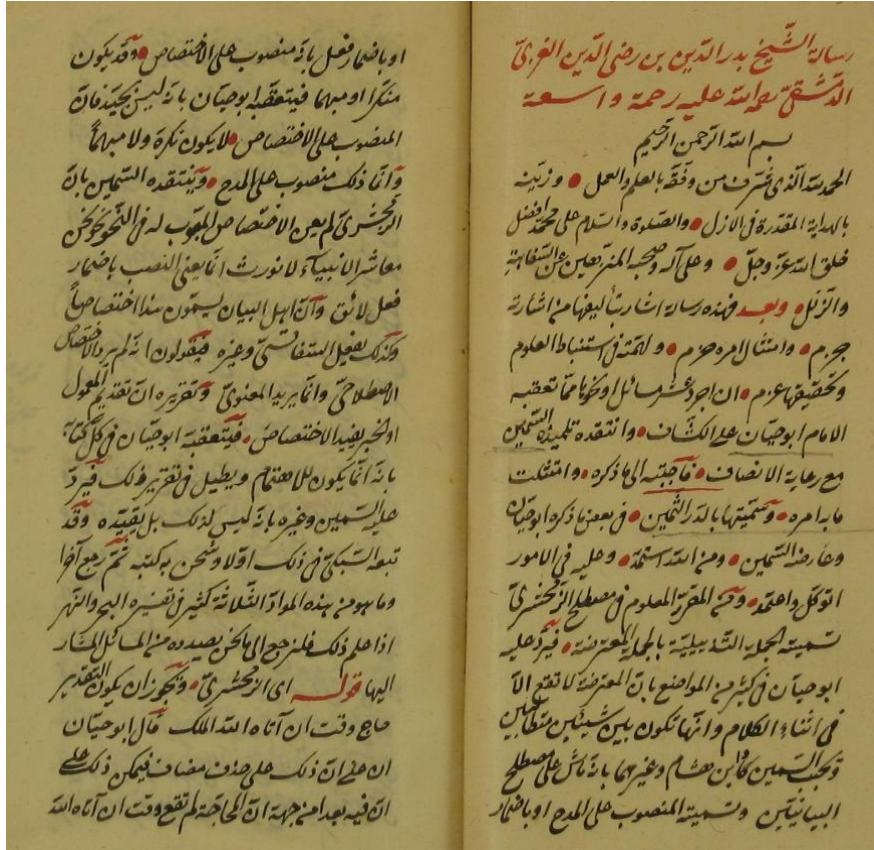 رسالة الشيخ بدر الدين بن رضى الدين الغزىّ
الدمشقىّ رحمه الله عليه رحمة واسعة
بسم الله الرحمن الرحيم
الحمد لله الذى شرف من وفقه بالعلم والعمل وزينه
بالهداية المقدرة فى الازل والصلوة والسلام على محمد افضل
خلق الله عز وجل وعلى آله وصحبه المنزهين عن السفاهة
والزلل وبعد فهذه رسالة اشار بتأليفها من اشارته
جزم وامتثال امره حزم ولهمته فى استنباط العلوم
وتحقيقها عزم ان اجرد عشر مسائل او نحوها مما تعقبه
الامام ابو حيان على الكشاف وانتقده تلميذه السمين
مع رعاية الانصاف فأجبته الى ما ذكره وامتثلت
ما به امره وسميتها بالدر الثمين فى بعض ما ذكره ابو حيان
وعارضه السمين ومن الله استمد وعليه فى الامور
اتوكل واعتمد وقع المقرر المعلوم فى مصطلح الزمخشرىّ
تسميته الجملة التذييلية بالجملة المعترضة فيرد عليه
ابو حيان فى كثير من المواضع بان المعترضة لا تقع الا
فى اثناء الكلام وانها تكون بين شيئين متطالبين
ويجيب السمين كابن هشام وغيرهما بانه ماش على مصطلح
البيانيين وتسميته المنصوب على المدح او باضمار
او باضمار فعل بانه منصوب على الاختصاص وقد يكون
منكرا او مبهما فيتعقبه ابو حيان بانه ليس بجيد فان
المنصوب على الاختصاص لا يكون نكرة ولا مبهماً
وانما ذلك منصوب على المدح وينتقده السمين بان
الزمخشرىّ لم يعن الاختصاص المبوب له فى النحو نحو نحن
معاشر الانبياء لا نورث انما يعنى النصب باضمار
فعل لائق وان اهل البيان يسمون هذا اختصاصاً
وكذلك يفعل السفاقسىّ وغيره فيقولون انه لم يرد الاختصاص
الاصطلاحىّ وانما يريد المعنوىّ وتقريره ان تقديم المعمول
او الخبر يفيد الاختصاص فيتعقبه ابو حيان فى كل كتابه
بانه انما يكون للاهتمام ويطيل فى تقرير ذلك فيرد
عليه السمين وغيره بانه ليس كذلك بل يفيده وقد
تبعه السبكىّ فى ذلك اولا وشحن به كتبه ثم رجع آخرا
وما هو من هذه المواد الثلاثة كثير فى تفسيره البحر والنهر
اذا علم ذلك فلنرجع الى ما نحن بصدده من المسائل المشار
اليها قوله اى الزمخشرىّ ويجوز ان يكون التقدير
حاج وقت ان آتاه الله الملك قال ابو حيان
ان عنى ان ذلك على حذف مضاف فيمكن ذلك على
ان فيه بعدا من جهة ان المحاجة لم تقع وقت ان آتاه الله